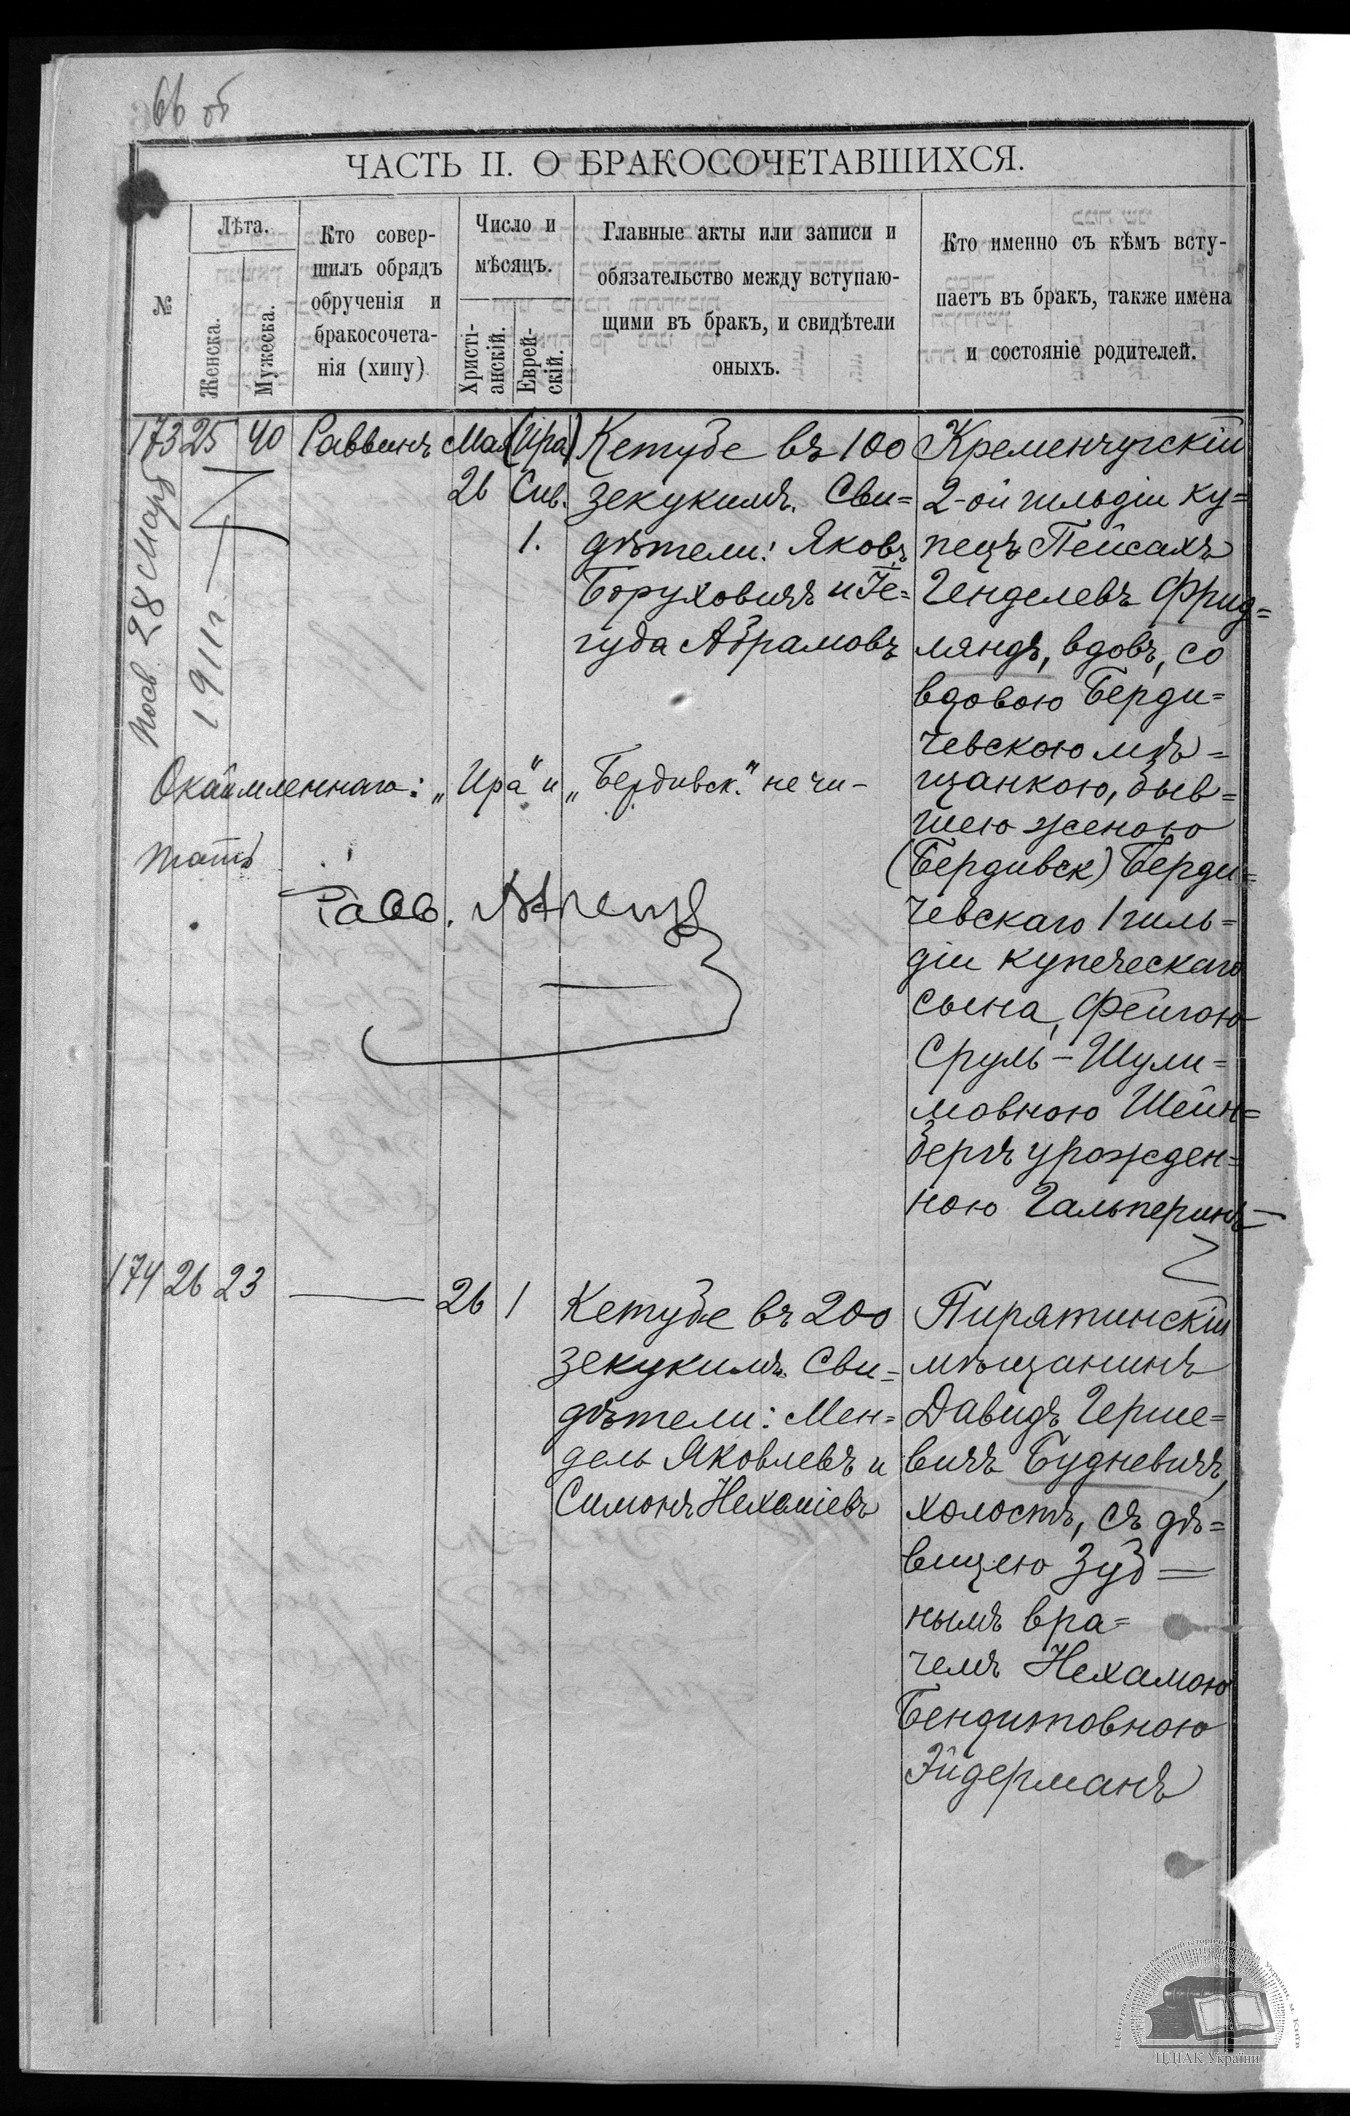 66 об
ЧАСТЬ II. О БРАКОСОЧЕТАВШИХСЯ.
№
Лѣта.
Женска.
Мужеска.
Кто совер-
шилъ обрядъ
обрученія и
бракосочета-
нія (хипу)
Число и
мѣсяцъ.
Христі-
анскій.
Еврей-
скій.
Главные акты или записи и
обязательство между вступаю-
щими въ бракъ, и свидѣтели
оныхъ.
Кто именно съ кѣмъ всту-
паетъ въ бракъ, также имена
и состояніе родителей.
173 25 40 Раввинъ Мая 26 (Ира) Сив. 1.
Кетубе въ 100
зекукимъ. Сви=
дѣтели: Яковъ
Боруховичъ и Іе=
гуда Абрамовъ
Кременчугскій
2-ой гильдіи ку=
пецъ Пейсахъ
Генделевъ Фрид=
ляндъ, вдовъ, со
вдовою Берди=
чевскою мѣ=
щанкою, быв=
шею женою
(Бердивск) Берди=
чевскаго 1 гиль=
діи купеческаго
сына, Фейгою
Сруль-Шули=
мовною Шейн=
бергъ урожден=
ною Гальперинъ
28 Март
1911 г.
Окаймленнаго: „Ира" и „Бердивск." не чи-
тать
Равв.
174 26 23 — 26 1
Кетубе въ 200
зекукимъ. Сви=
дѣтели: Мен=
дель Яковлевъ и
Симонъ Нехаміевъ
Пирятинскій
мѣщанинъ
Давидъ Герше=
вичъ Будневичъ,
холостъ, съ дѣ=
вицею зуб=
нымъ вра=
чемъ Нехамою
Бендитовною
Эйдерманъ
ЦДІАК України